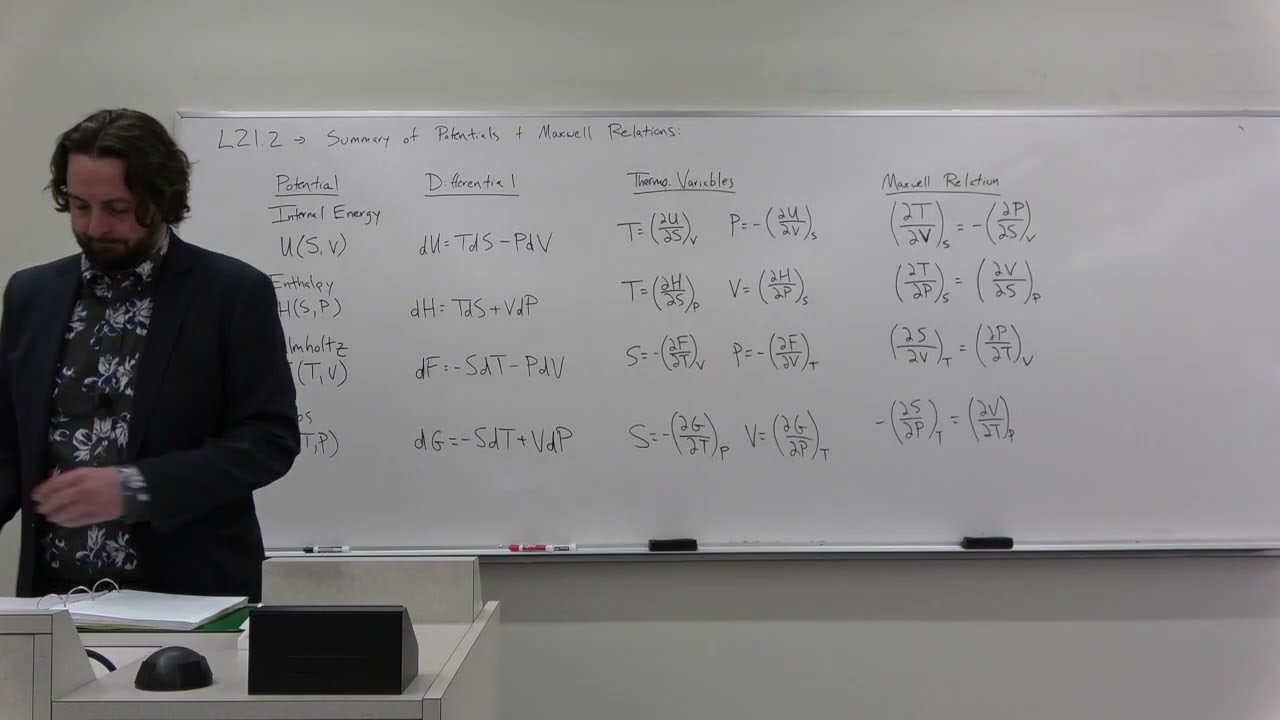 L21.2 → Summary of Potentials + Maxwell Relations:
Potential Differential Thermo. Variables Maxwell Relation
Internal Energy
U(S,V) dU=TdS-PdV T=(∂U/∂S)_V P=-(∂U/∂V)_S (∂T/∂V)_S=-(∂P/∂S)_V
Enthalpy
H(S,P) dH=TdS+VdP T=(∂H/∂S)_P V=(∂H/∂P)_S (∂T/∂P)_S=(∂V/∂S)_P
lmholtz
(T,V) dF=-SdT-PdV S=-(∂F/∂T)_V P=-(∂F/∂V)_T (∂S/∂V)_T=(∂P/∂T)_V
T,P) dG=-SdT+VdP S=-(∂G/∂T)_P V=(∂G/∂P)_T -(∂S/∂P)_T=(∂V/∂T)_P